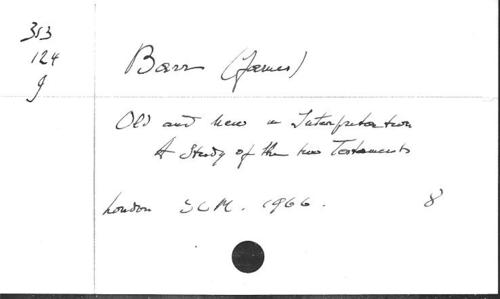 353
124
g
Barr (James)
Old and New in Interpretation
A Study of the two Testaments
London SCM. 1966. 8